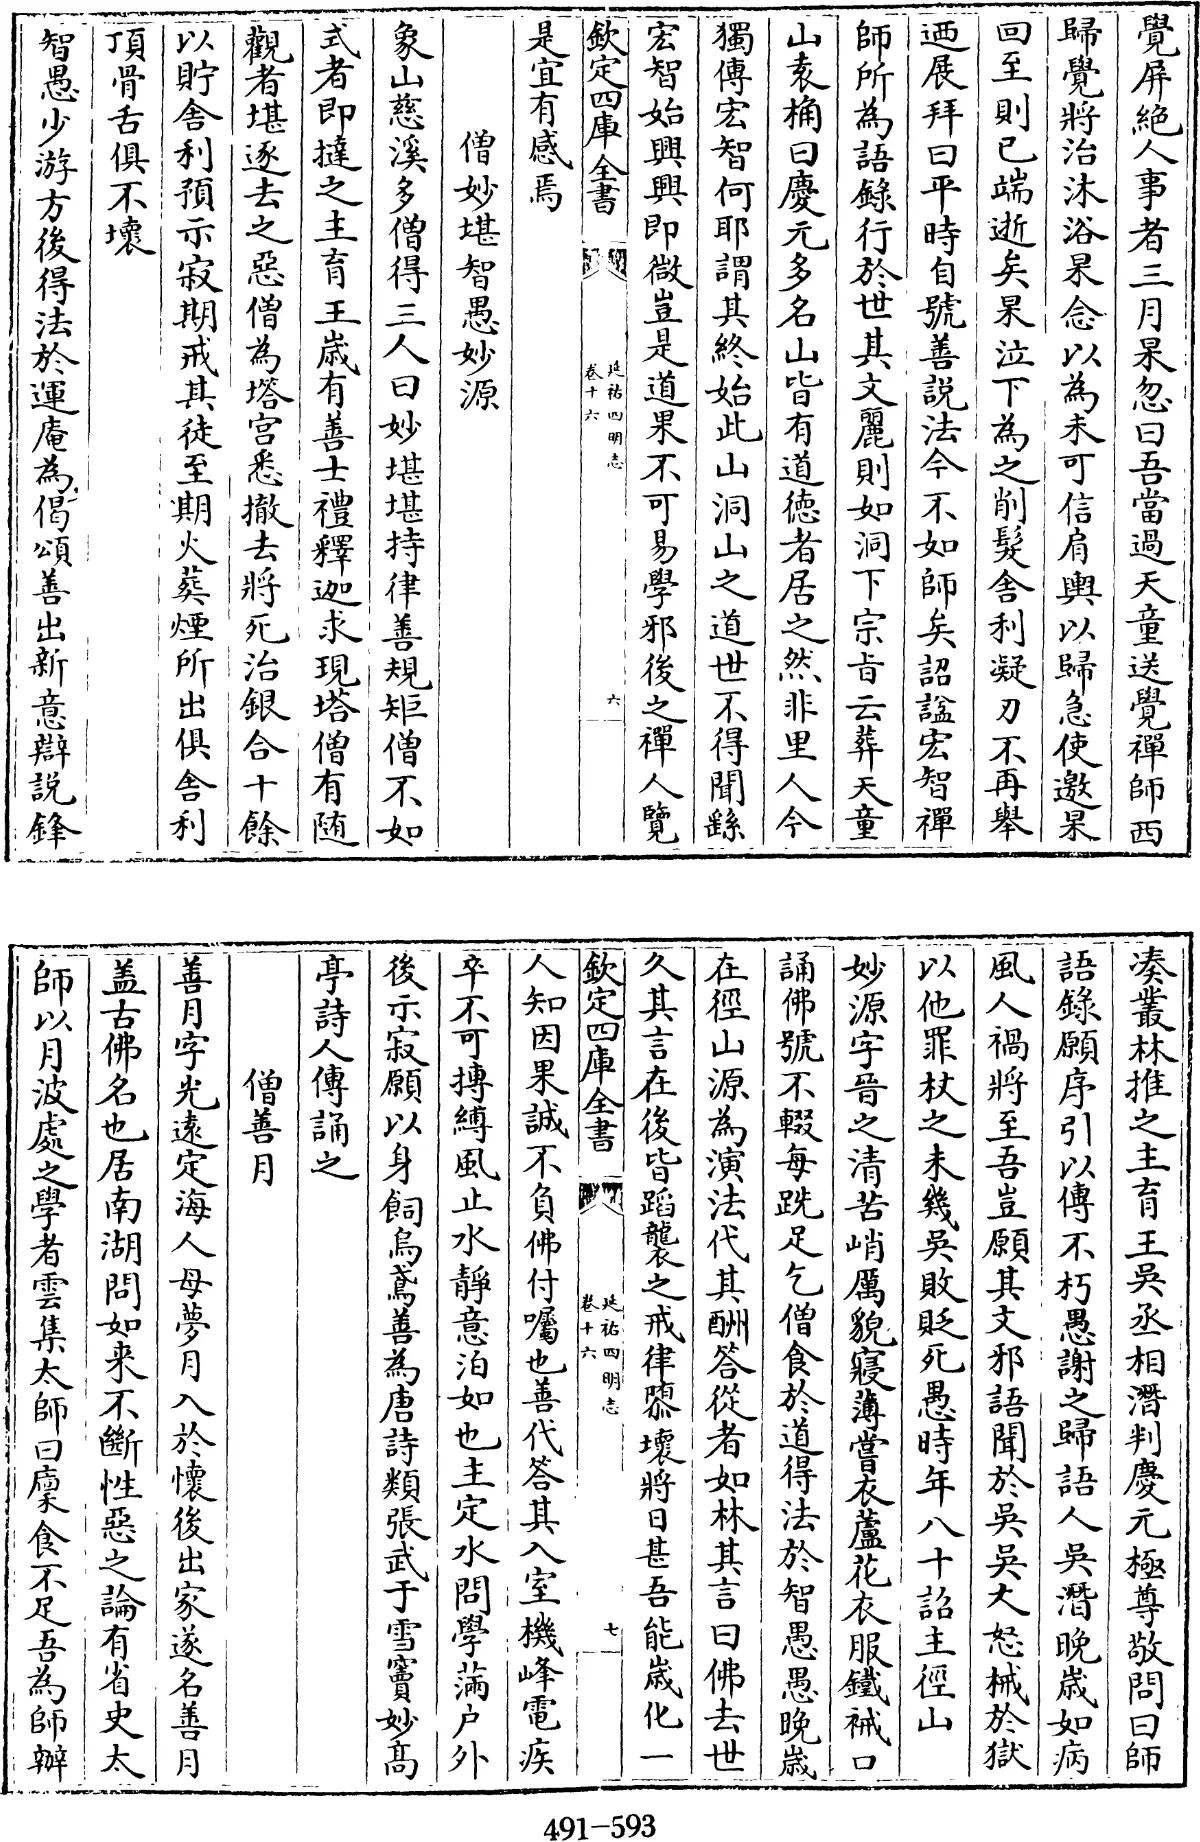 覺屏絶人事者三月杲忽曰吾當過天童送覺禪師西
歸覺將治沐浴杲念以為未可信肩輿以歸急使邀杲
回至則已端逝矣杲泣下為之削髮舍利凝刃不再舉
迺展拜曰平時自號善説法今不如師矣詔諡宏智禪
師所為語錄行於世其文麗則如洞下宗旨云葬天童
山袁桷曰慶元多名山皆有道徳者居之然非里人今
獨傳宏智何耶謂其終始此山洞山之道世不得聞繇
宏智始興興即微豈是道果不可易學邪後之禪人覽
欽定四庫全書
延祐四明志
卷十六
六
是宜有感焉
僧妙堪智愚妙源
象山慈溪多僧得三人曰妙堪堪持律善規矩僧不如
式者即撻之主育王歳有善士禮釋迦求現塔僧有随
觀者堪逐去之惡僧為塔宫悉撤去將死治銀合十餘
以貯舎利預示寂期戒其徒至期火葬煙所出俱舎利
頂骨舌俱不壞
智愚少游方後得法於運庵為偈頌善出新意辯説鋒
湊叢林推之主育王吳丞相潛判慶元極尊敬問曰師
語錄願序引以傳不朽愚謝之歸語人吳潛晚歳如病
風人禍將至吾豈願其文邪語聞於吳吳大怒械於獄
以他罪杖之未幾吳敗貶死愚時年八十詔主徑山
妙源字晉之清苦峭厲貌寢薄嘗衣蘆花衣服鐵裓口
誦佛號不輟每跣足乞僧食於道得法於智愚愚晚歳
在徑山源為演法代其酬答從者如林其言曰佛去世
久其言在後皆蹈襲之戒律隳壞將日甚吾能歳化一
欽定四庫全書
延祐四明志
卷十六
七
人知因果誠不負佛付囑也善代答其入室機峰電疾
卒不可摶縛風止水靜意泊如也主定水問學滿户外
後示寂願以身飼烏鳶善為唐詩類張武于雪竇妙髙
亭詩人傳誦之
僧善月
善月字光逺定海人母夢月入於懐後出家遂名善月
盖古佛名也居南湖問如来不斷性惡之論有省史太
師以月波處之學者雲集太師曰廩食不足吾為師辦
491-593